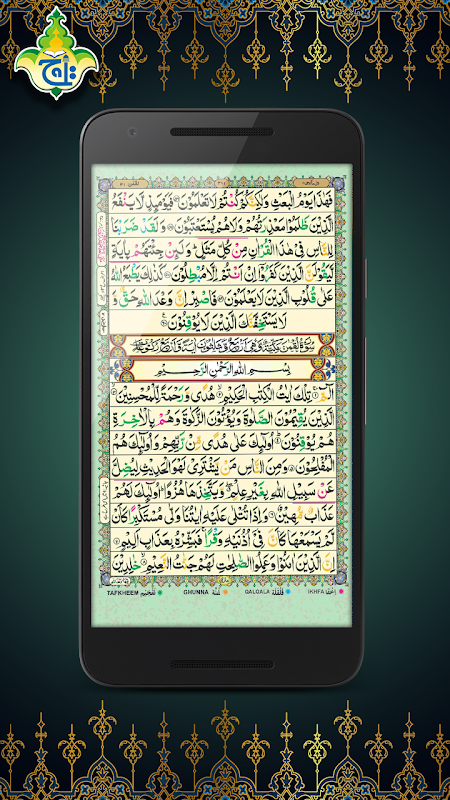 تاج
فَهٰذَا يَوْمُ الْبَعْثِ وَلٰكِنَّكُمْ كُنْتُمْ لَا تَعْلَمُوْنَ ۝ فَيَوْمَئِذٍ لَّا يَنْفَعُ
الَّذِيْنَ ظَلَمُوْا مَعْذِرَتُهُمْ وَلَا هُمْ يُسْتَعْتَبُوْنَ ۝ وَلَقَدْ ضَرَبْنَا
لِلنَّاسِ فِيْ هٰذَا الْقُرْاٰنِ مِنْ كُلِّ مَثَلٍ ؕ وَلَئِنْ جِئْتَهُمْ بِاٰيَةٍ
لَّيَقُوْلَنَّ الَّذِيْنَ كَفَرُوْۤا اِنْ اَنْتُمْ اِلَّا مُبْطِلُوْنَ ۝ كَذٰلِكَ يَطْبَعُ اللّٰهُ
عَلٰى قُلُوْبِ الَّذِيْنَ لَا يَعْلَمُوْنَ ۝ فَاصْبِرْ اِنَّ وَعْدَ اللّٰهِ حَقٌّ وَّ
لَا يَسْتَخِفَّنَّكَ الَّذِيْنَ لَا يُوْقِنُوْنَ ۝
سُوْرَةُ لُقْمٰنَ مَكِّيَّةٌ وَّهِيَ اَرْبَعٌ وَّثَلٰثُوْنَ اٰيَةً وَّاَرْبَعُ رُكُوْعَاتٍ
بِسْمِ اللّٰهِ الرَّحْمٰنِ الرَّحِيْمِ
الٓمّٓ ۝ تِلْكَ اٰيٰتُ الْكِتٰبِ الْحَكِيْمِ ۝ هُدًى وَّرَحْمَةً لِّلْمُحْسِنِيْنَ ۝
الَّذِيْنَ يُقِيْمُوْنَ الصَّلٰوةَ وَيُؤْتُوْنَ الزَّكٰوةَ وَهُمْ بِالْاٰخِرَةِ
هُمْ يُوْقِنُوْنَ ۝ اُولٰٓئِكَ عَلٰى هُدًى مِّنْ رَّبِّهِمْ وَاُولٰٓئِكَ هُمُ
الْمُفْلِحُوْنَ ۝ وَمِنَ النَّاسِ مَنْ يَّشْتَرِيْ لَهْوَ الْحَدِيْثِ لِيُضِلَّ
عَنْ سَبِيْلِ اللّٰهِ بِغَيْرِ عِلْمٍ ۖ وَّيَتَّخِذَهَا هُزُوًا ؕ اُولٰٓئِكَ لَهُمْ
عَذَابٌ مُّهِيْنٌ ۝ وَاِذَا تُتْلٰى عَلَيْهِ اٰيٰتُنَا وَلّٰى مُسْتَكْبِرًا كَاَنْ
لَّمْ يَسْمَعْهَا كَاَنَّ فِيْۤ اُذُنَيْهِ وَقْرًا ۚ فَبَشِّرْهُ بِعَذَابٍ اَلِيْمٍ ۝
اِنَّ الَّذِيْنَ اٰمَنُوْا وَعَمِلُوا الصّٰلِحٰتِ لَهُمْ جَنّٰتُ النَّعِيْمِ ۝ خٰلِدِيْنَ
TAFKHEEM تَفْخِيْم GHUNNA غُنَّة QALQALA قَلْقَلَة IKHFA اِخْفَا